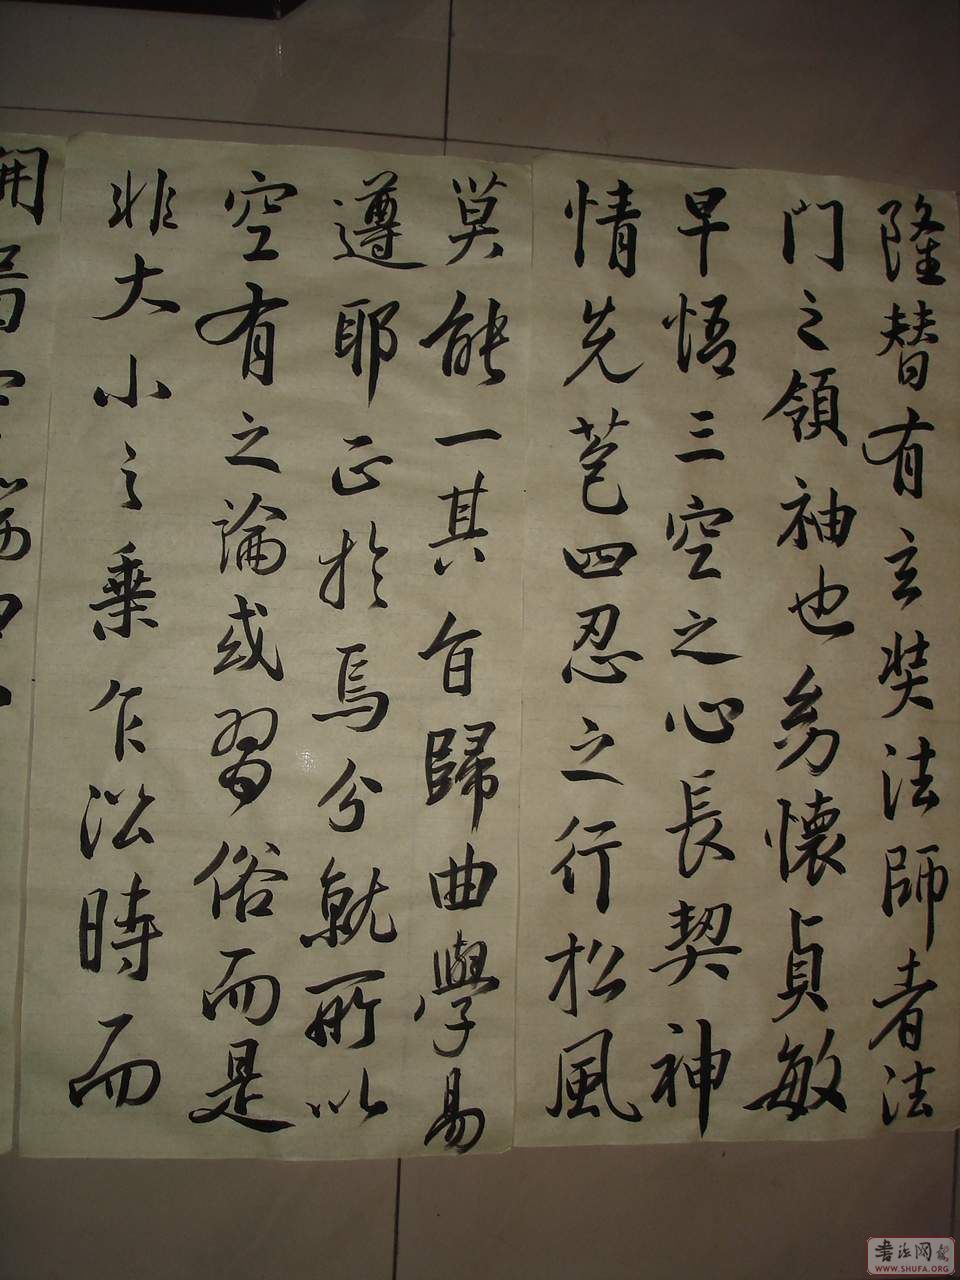 隆替有玄奘法師者法
門之領袖也幼懷貞敏
早悟三空之心長契神
情先苞四忍之行松風
莫能一其旨歸曲學易
遵耶正於焉分就所以
空有之論或習俗而是
非大小之乘乍沿時而
書法网
WWW.SHUFA.ORG